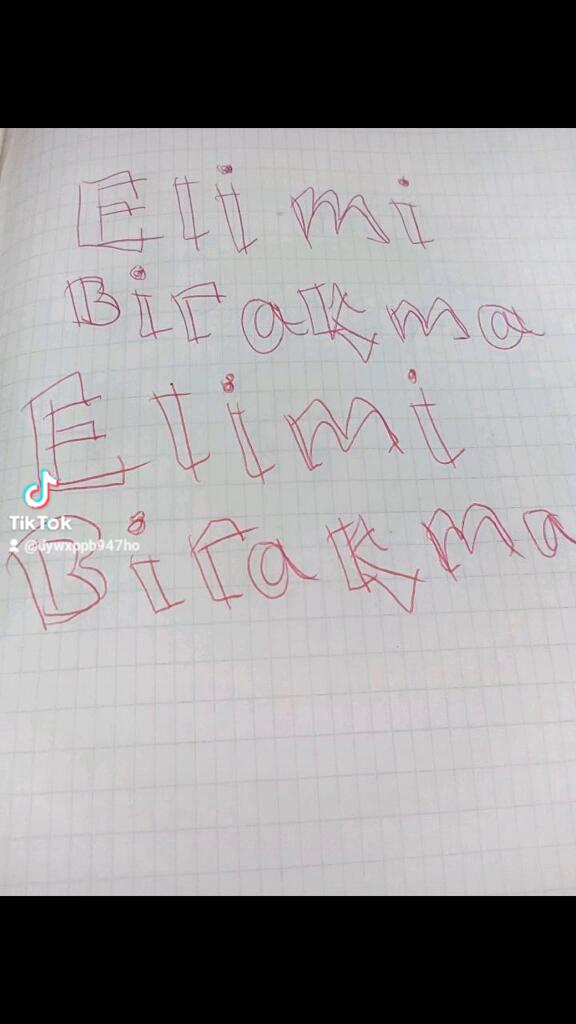 Elimi
Birakma
Elimi
Birakma
TikTok
@üywxppb947ho